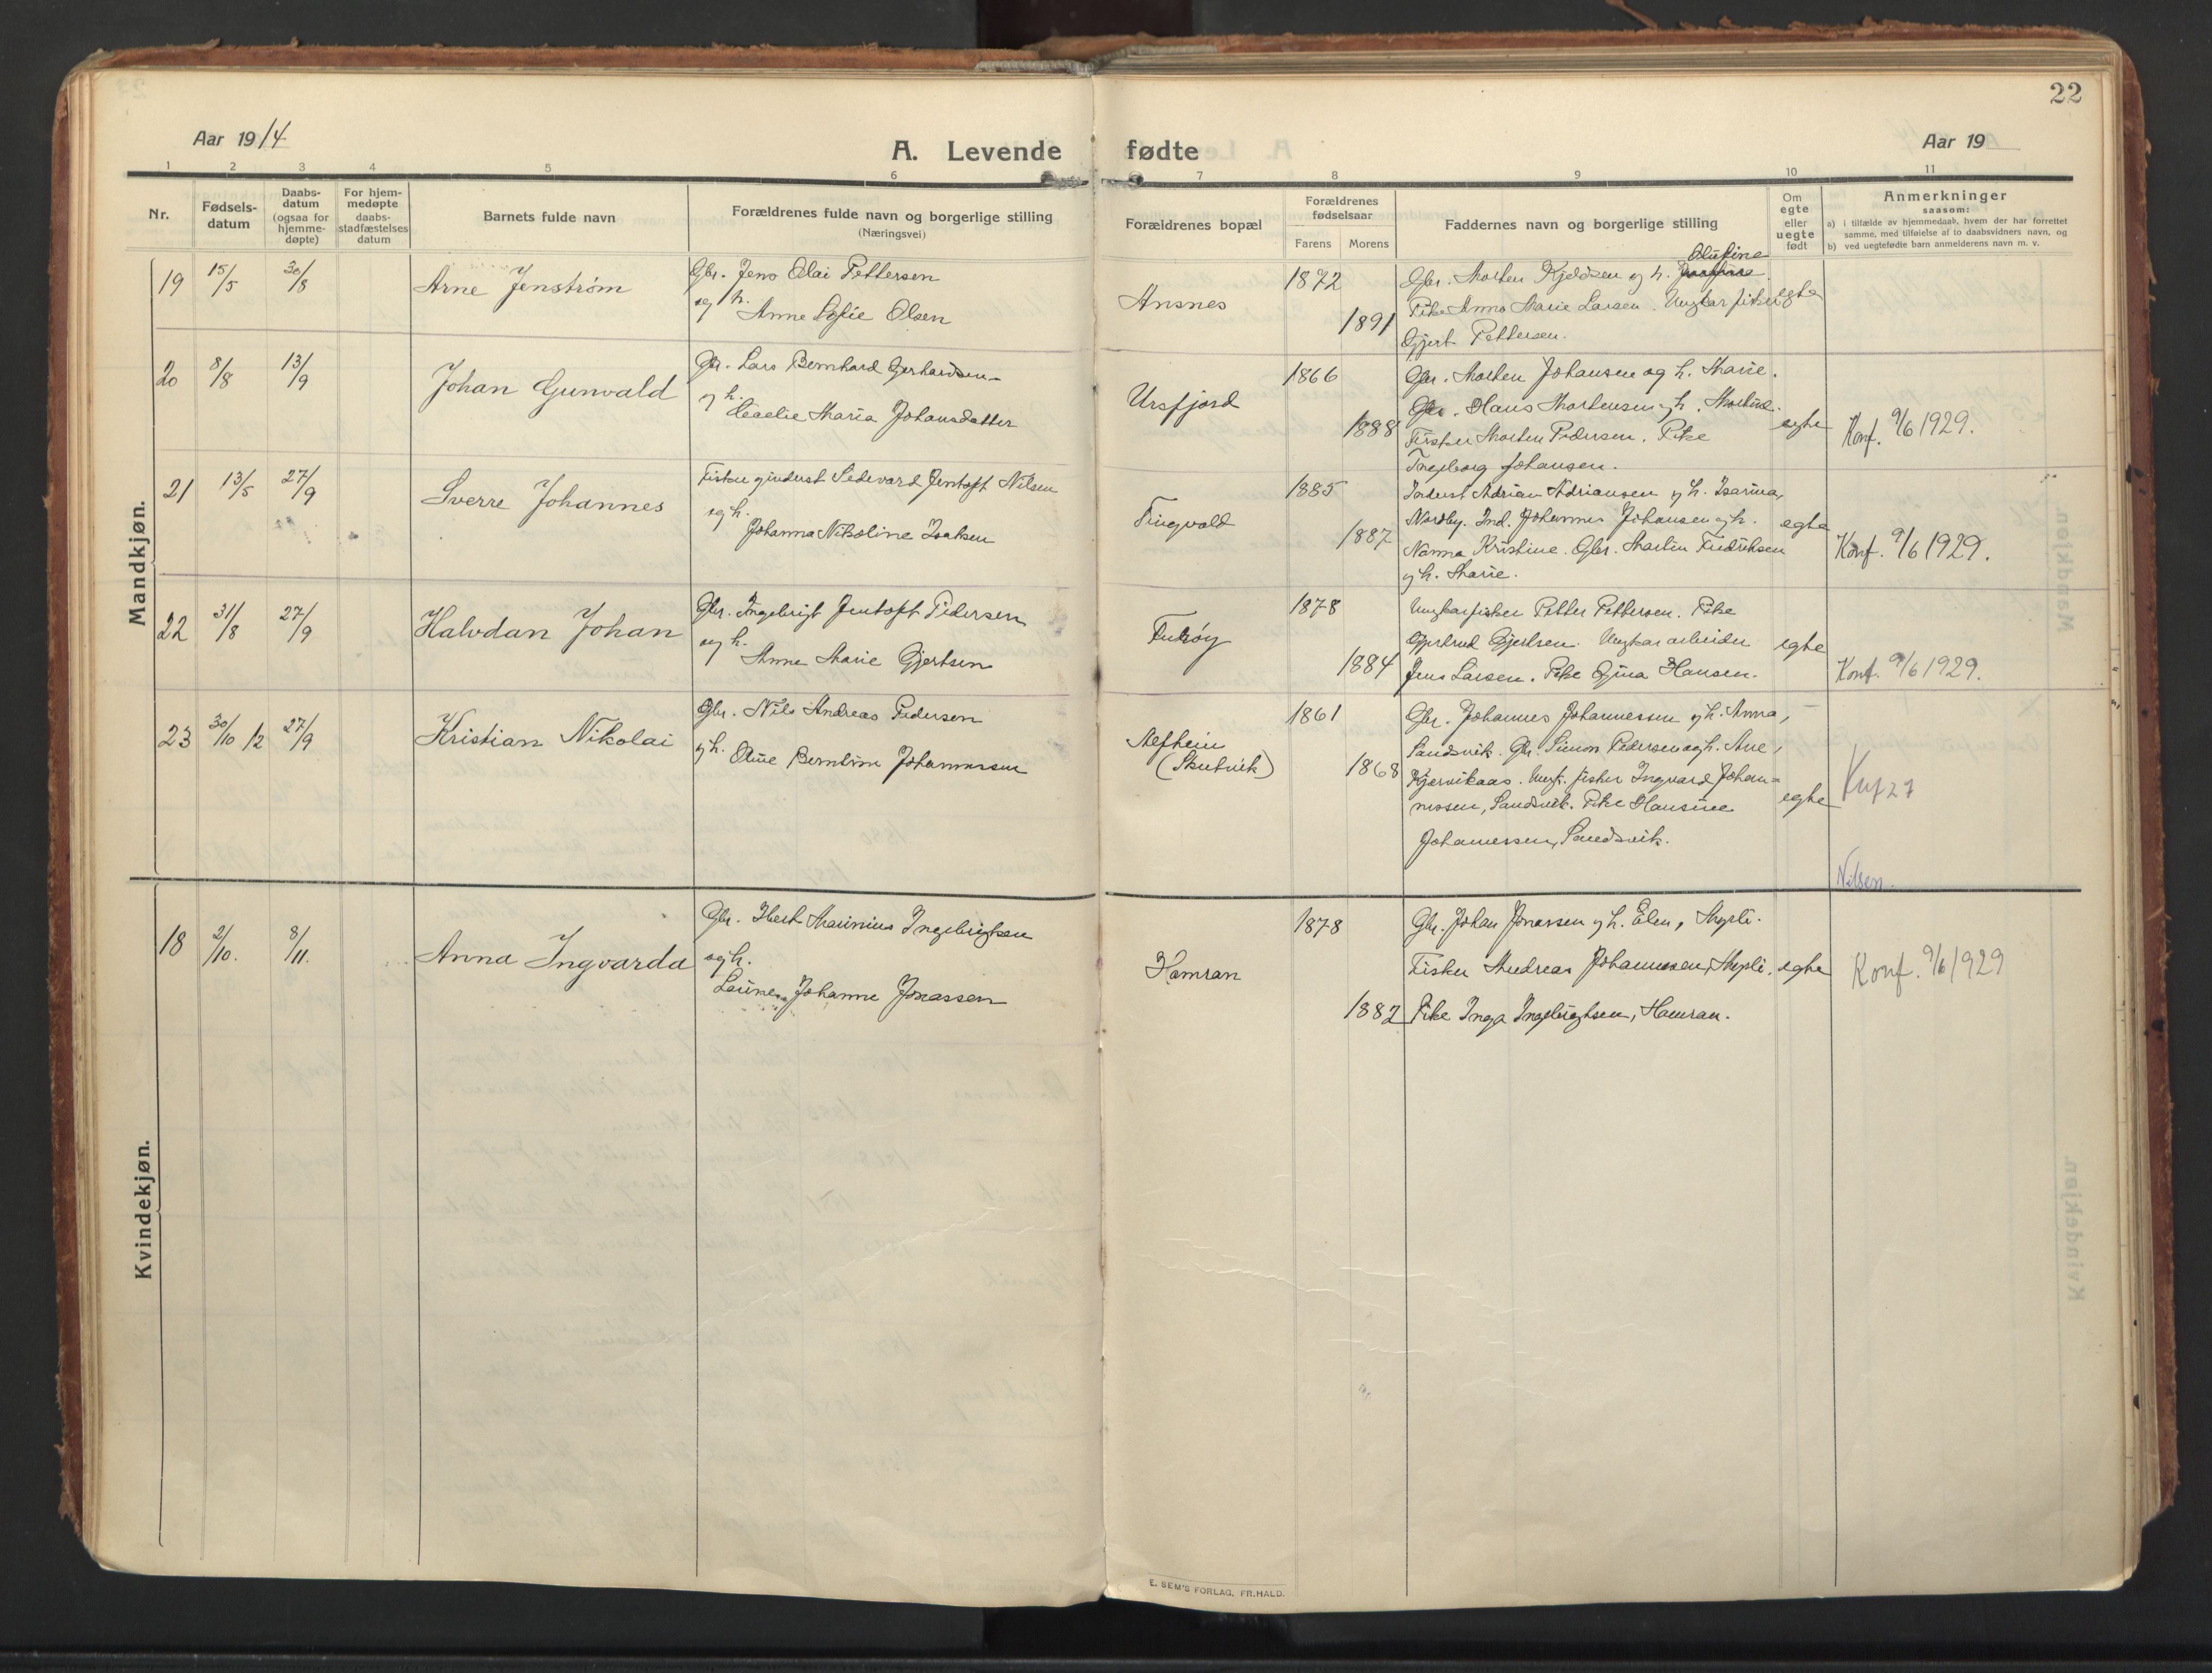 22
Aar 1914
A. Levende fødte
Aar 19
1 2 3 4 5 6 7 8 9 10 11
Nr.
Fødsels-
datum
Daabs-
datum
(ogsaa for
hjemme-
døpte)
For hjem-
medøpte
daabs-
stadfæstelses
datum
Barnets fulde navn
Forældrenes fulde navn og borgerlige stilling
(Næringsvei)
Forældrenes bopæl
Forældrenes
fødselsaar
Farens Morens
Faddernes navn og borgerlige stilling
Om
egte
eller
uegte
født
Anmerkninger
saasom:
a) i tilfælde av hjemmedaab, hvem der har forrettet
samme, med tilføielse af to daabsvidners navn, og
b) ved uegtefødte barn anmelderens navn m. v.
Mandkjøn.
19 15/5 30/8 Arne Jenstrøm
Gbr. Jens Olai Pettersen
og h.
Anne Sofie Olsen
Ansnes
1872
1891
Olufine
Gbr. Morten Kjeldsen og h.
Pike Anna Marie Larsen. Ungkar fisker
Gjert Pettersen.
egte
20 8/8 13/9 Johan Gunvald
Gbr. Lars Bernhard Gerhardsen
og h.
Maria Johansdatter
Ursfjord
1866
1888
Gbr. Morten Johansen og h. Marie.
Gbr. Hans Mortensen og h.
Fisker Morten Pedersen. Pike
Ingeborg Johansen.
egte
Konf. 9/6 1929.
21 13/5 27/9 Sverre Johannes
Fisker og inderst Sedevard Jentoft Nilsen
og h.
Johanna Nikoline Isaksen
Trugvold
1885
1887
Inderst Adrian Adriansen og h. Isarina,
Nordby. Ind. Johannes Johansen og h.
Nanna Kristine. Gbr. Martin Fredriksen
og h. Marie.
egte
Konf. 9/6 1929.
22 31/8 27/9 Halvdan Johan
Gbr. Ingebrigt Jentoft Pedersen
og h.
Anne Marie Gjertsen
1878
1884
Ungkar fisker Petter Pettersen. Pike
Gjertrud Gjertsen. Ungkar arbeider
Jens Larsen. Pike Gina Hansen.
egte
Konf. 9/6 1929.
23 30/10 12 27/9 Kristian Nikolai
Gbr. Nils Andreas Pedersen
og h. Oline Berntine Johannessen
Alfheim
(Skutvik)
1861
1868
Gbr. Johannes Johannessen og h. Anna,
Sandsvik. Gbr. Simon Pedersen og h. Ane,
Kjærvikaas. Ungk. fisker Ingvard Johan=
nessen, Sandsvik. Pike Hansine
Johannessen, Sandsvik.
egte
Knf 27
Nilsen.
Kvindekjøn.
18 2/10. 8/11. Anna Ingvarda
Gbr. Marinius Ingebrigtsen
og h.
Johanne Jonassen
Hamran
1878
1882
Gbr. Johan Jonassen og h. Elen,
Fisker Andreas Johannessen,
Pike Inga Ingebrigtsen, Hamran.
egte
Konf. 9/6 1929
E. SEM'S FORLAG, FR.HALD.